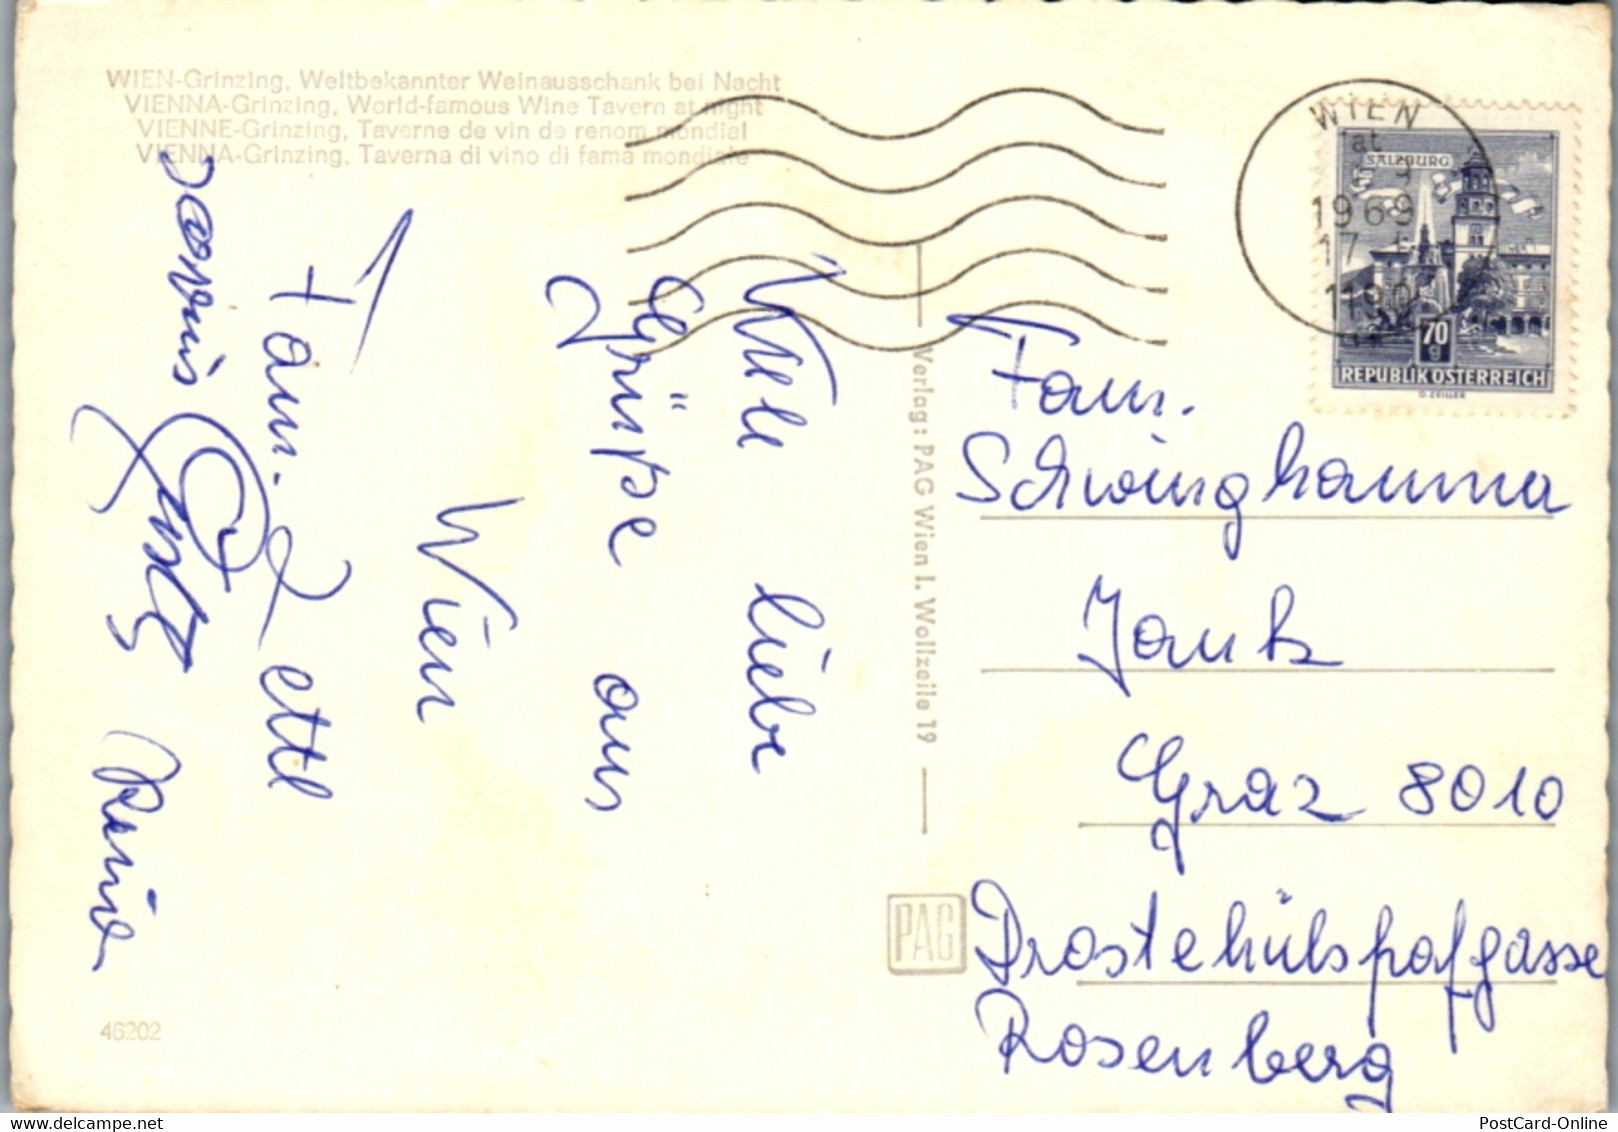 WIEN-Grinzing, Weltbekannter Weinausschank bei Nacht
VIENNA-Grinzing, World-famous Wine Tavern at night
VIENNE-Grinzing, Taverne de vin de renom mondial
VIENNA-Grinzing, Taverna di vino di fama mondiale
Viele liebe
Grüße aus
Wien
Fam. Zettl
WIEN
at
1969
17
1190
SALZBURG
70
g
REPUBLIK OSTERREICH
O. ZEILLER
Verlag: PAG Wien I. Wollzeile 19
Fam.
Schwinghammer
Jauk
Graz 8010
Drostehülshofgasse
Rosenberg
PAG
46202
PostCard-online.net
PostCard-Online